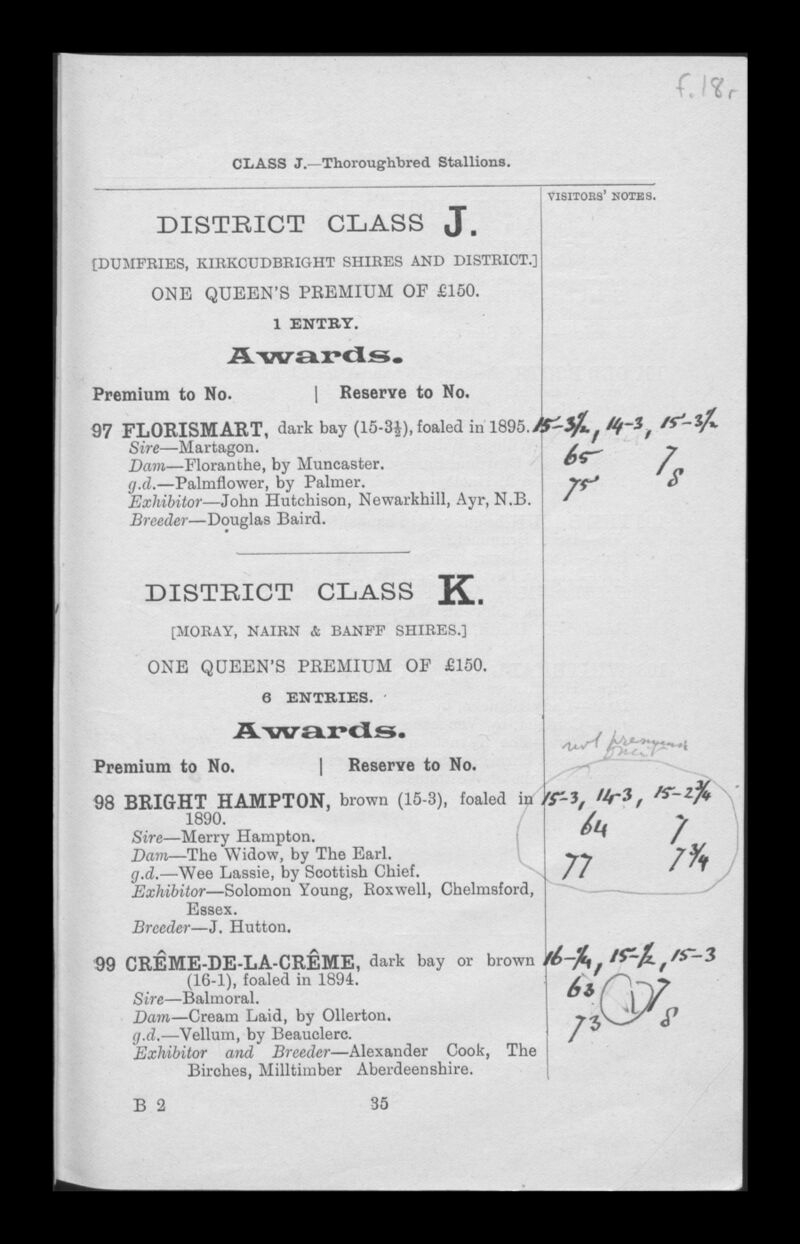 f.18r
CLASS J.—Thoroughbred Stallions.
VISITORS' NOTES.
DISTRICT CLASS J.
[DUMFRIES, KIRKCUDBRIGHT SHIRES AND DISTRICT.]
ONE QUEEN'S PREMIUM OF £150.
1 ENTRY.
Awards.
Premium to No. | Reserve to No.
97 FLORISMART, dark bay (15-3½), foaled in 1895.
Sire—Martagon.
Dam—Floranthe, by Muncaster.
g.d.—Palmflower, by Palmer.
Exhibitor—John Hutchison, Newarkhill, Ayr, N.B.
Breeder—Douglas Baird.
15-3½, 14-3, 15-3½
65 7
75 8
DISTRICT CLASS K.
[MORAY, NAIRN & BANFF SHIRES.]
ONE QUEEN'S PREMIUM OF £150.
6 ENTRIES.
Awards.
Premium to No. | Reserve to No.
not
98 BRIGHT HAMPTON, brown (15-3), foaled in
1890.
Sire—Merry Hampton.
Dam—The Widow, by The Earl.
g.d.—Wee Lassie, by Scottish Chief.
Exhibitor—Solomon Young, Roxwell, Chelmsford,
Essex.
Breeder—J. Hutton.
15-3, 14-3, 15-2¾
64 7
77 7¾
99 CRÊME-DE-LA-CRÊME, dark bay or brown
(16-1), foaled in 1894.
Sire—Balmoral.
Dam—Cream Laid, by Ollerton.
g.d.—Vellum, by Beauclerc.
Exhibitor and Breeder—Alexander Cook, The
Birches, Milltimber Aberdeenshire.
16-¼, 15-½, 15-3
63 1 7
73 8
B 2 35